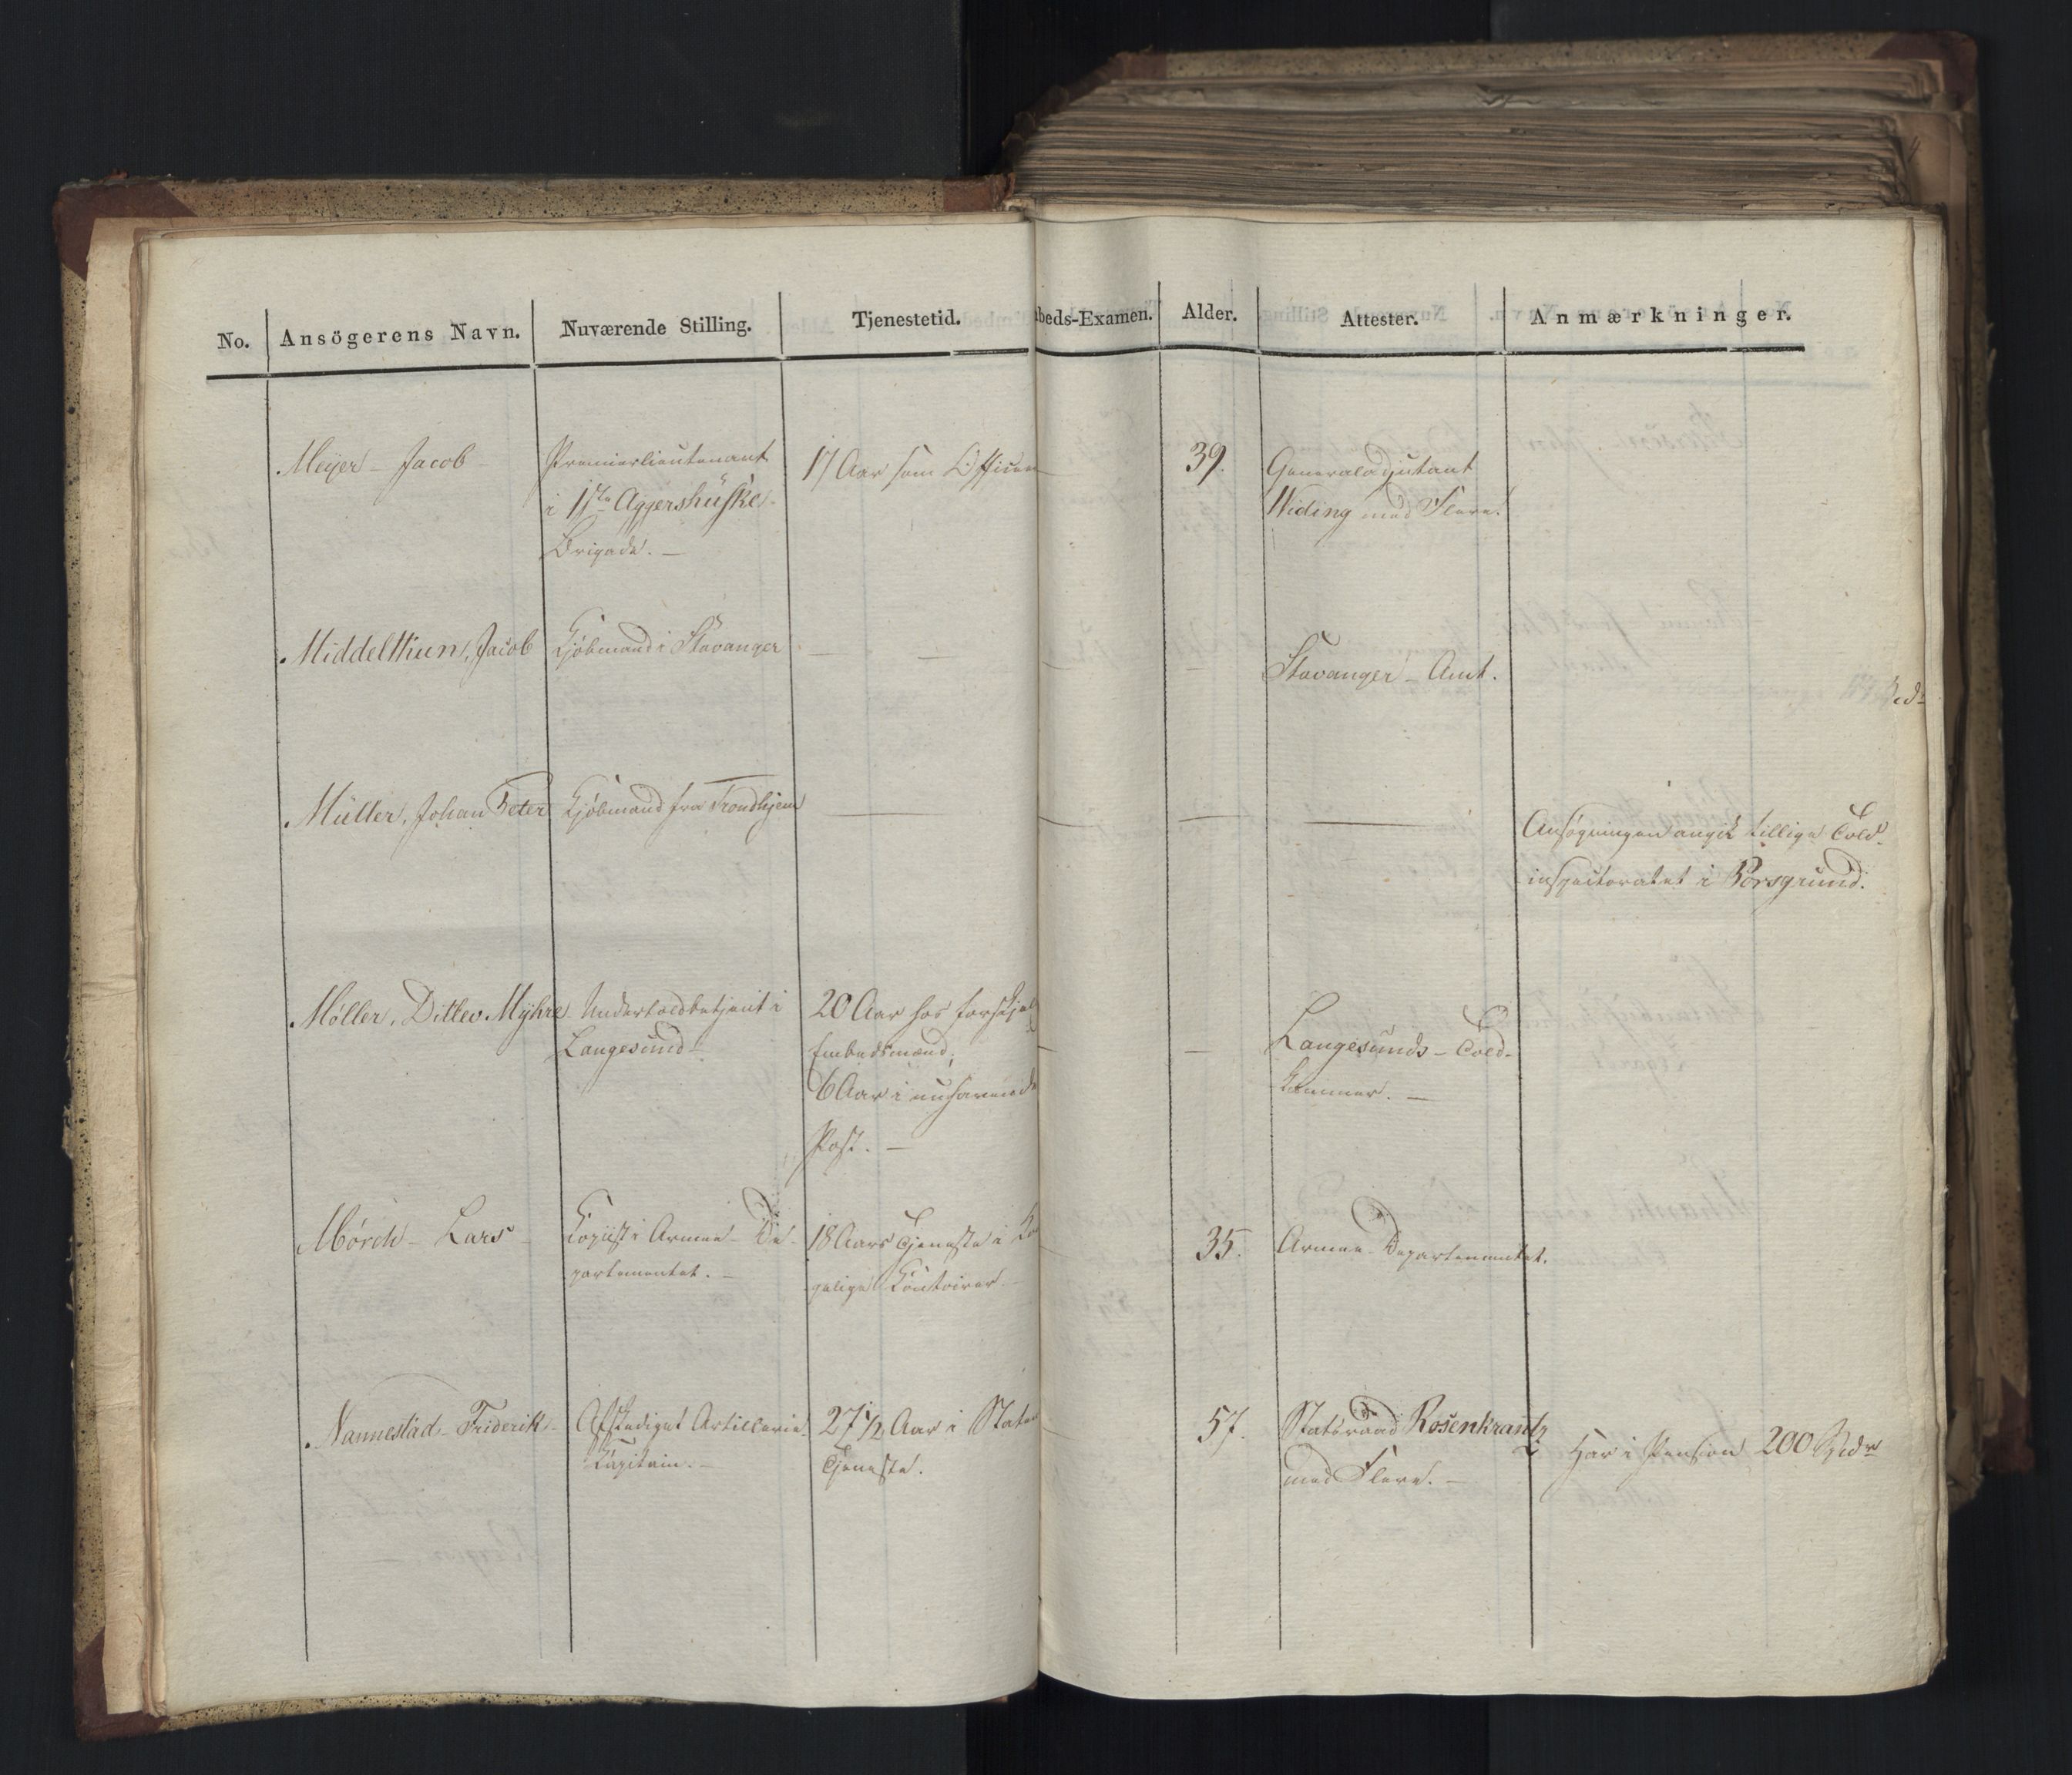 No. Ansögerens Navn. Nuværende Stilling. Tjenestetid. beds-Examen. Alder. Attester. Anmærkninger.
Meyer - Jacob - Premierlieutenant 17 Aar som Officer 39. Generaladjutant
i 1ste Aggershuuske Widing med Flere.
Brigade. -
Middelthun, Jacob Kjøbmand i Stavanger - - - - Stavanger - Amt.
Müller, Johan Peter Kjøbmand fra Trondhjem - - - - Ansøgningen angik tillige Told-
inspectoratet i Porsgrund.
Møller, Ditlev Myhre Undertoldbetjent i 20 Aar hos forskjel - - Langesunds - Told-
Langesund - Embedsmænd; kammer. -
6 Aar i nuhavende
Post. -
Mörch - Lars - Kopist i Armee - De- 18 Aars Tjeneste i 35. Armee-Departementet.
partementet. - gelige Kontoirer -
Nannestad - Friderik - Afskediget Artillerie- 27 1/2 Aar i Staten 57. Statsraad Rosenkrantz Har i Pension 200 Spdr
Kapitain. - Tjeneste. med Flere. -